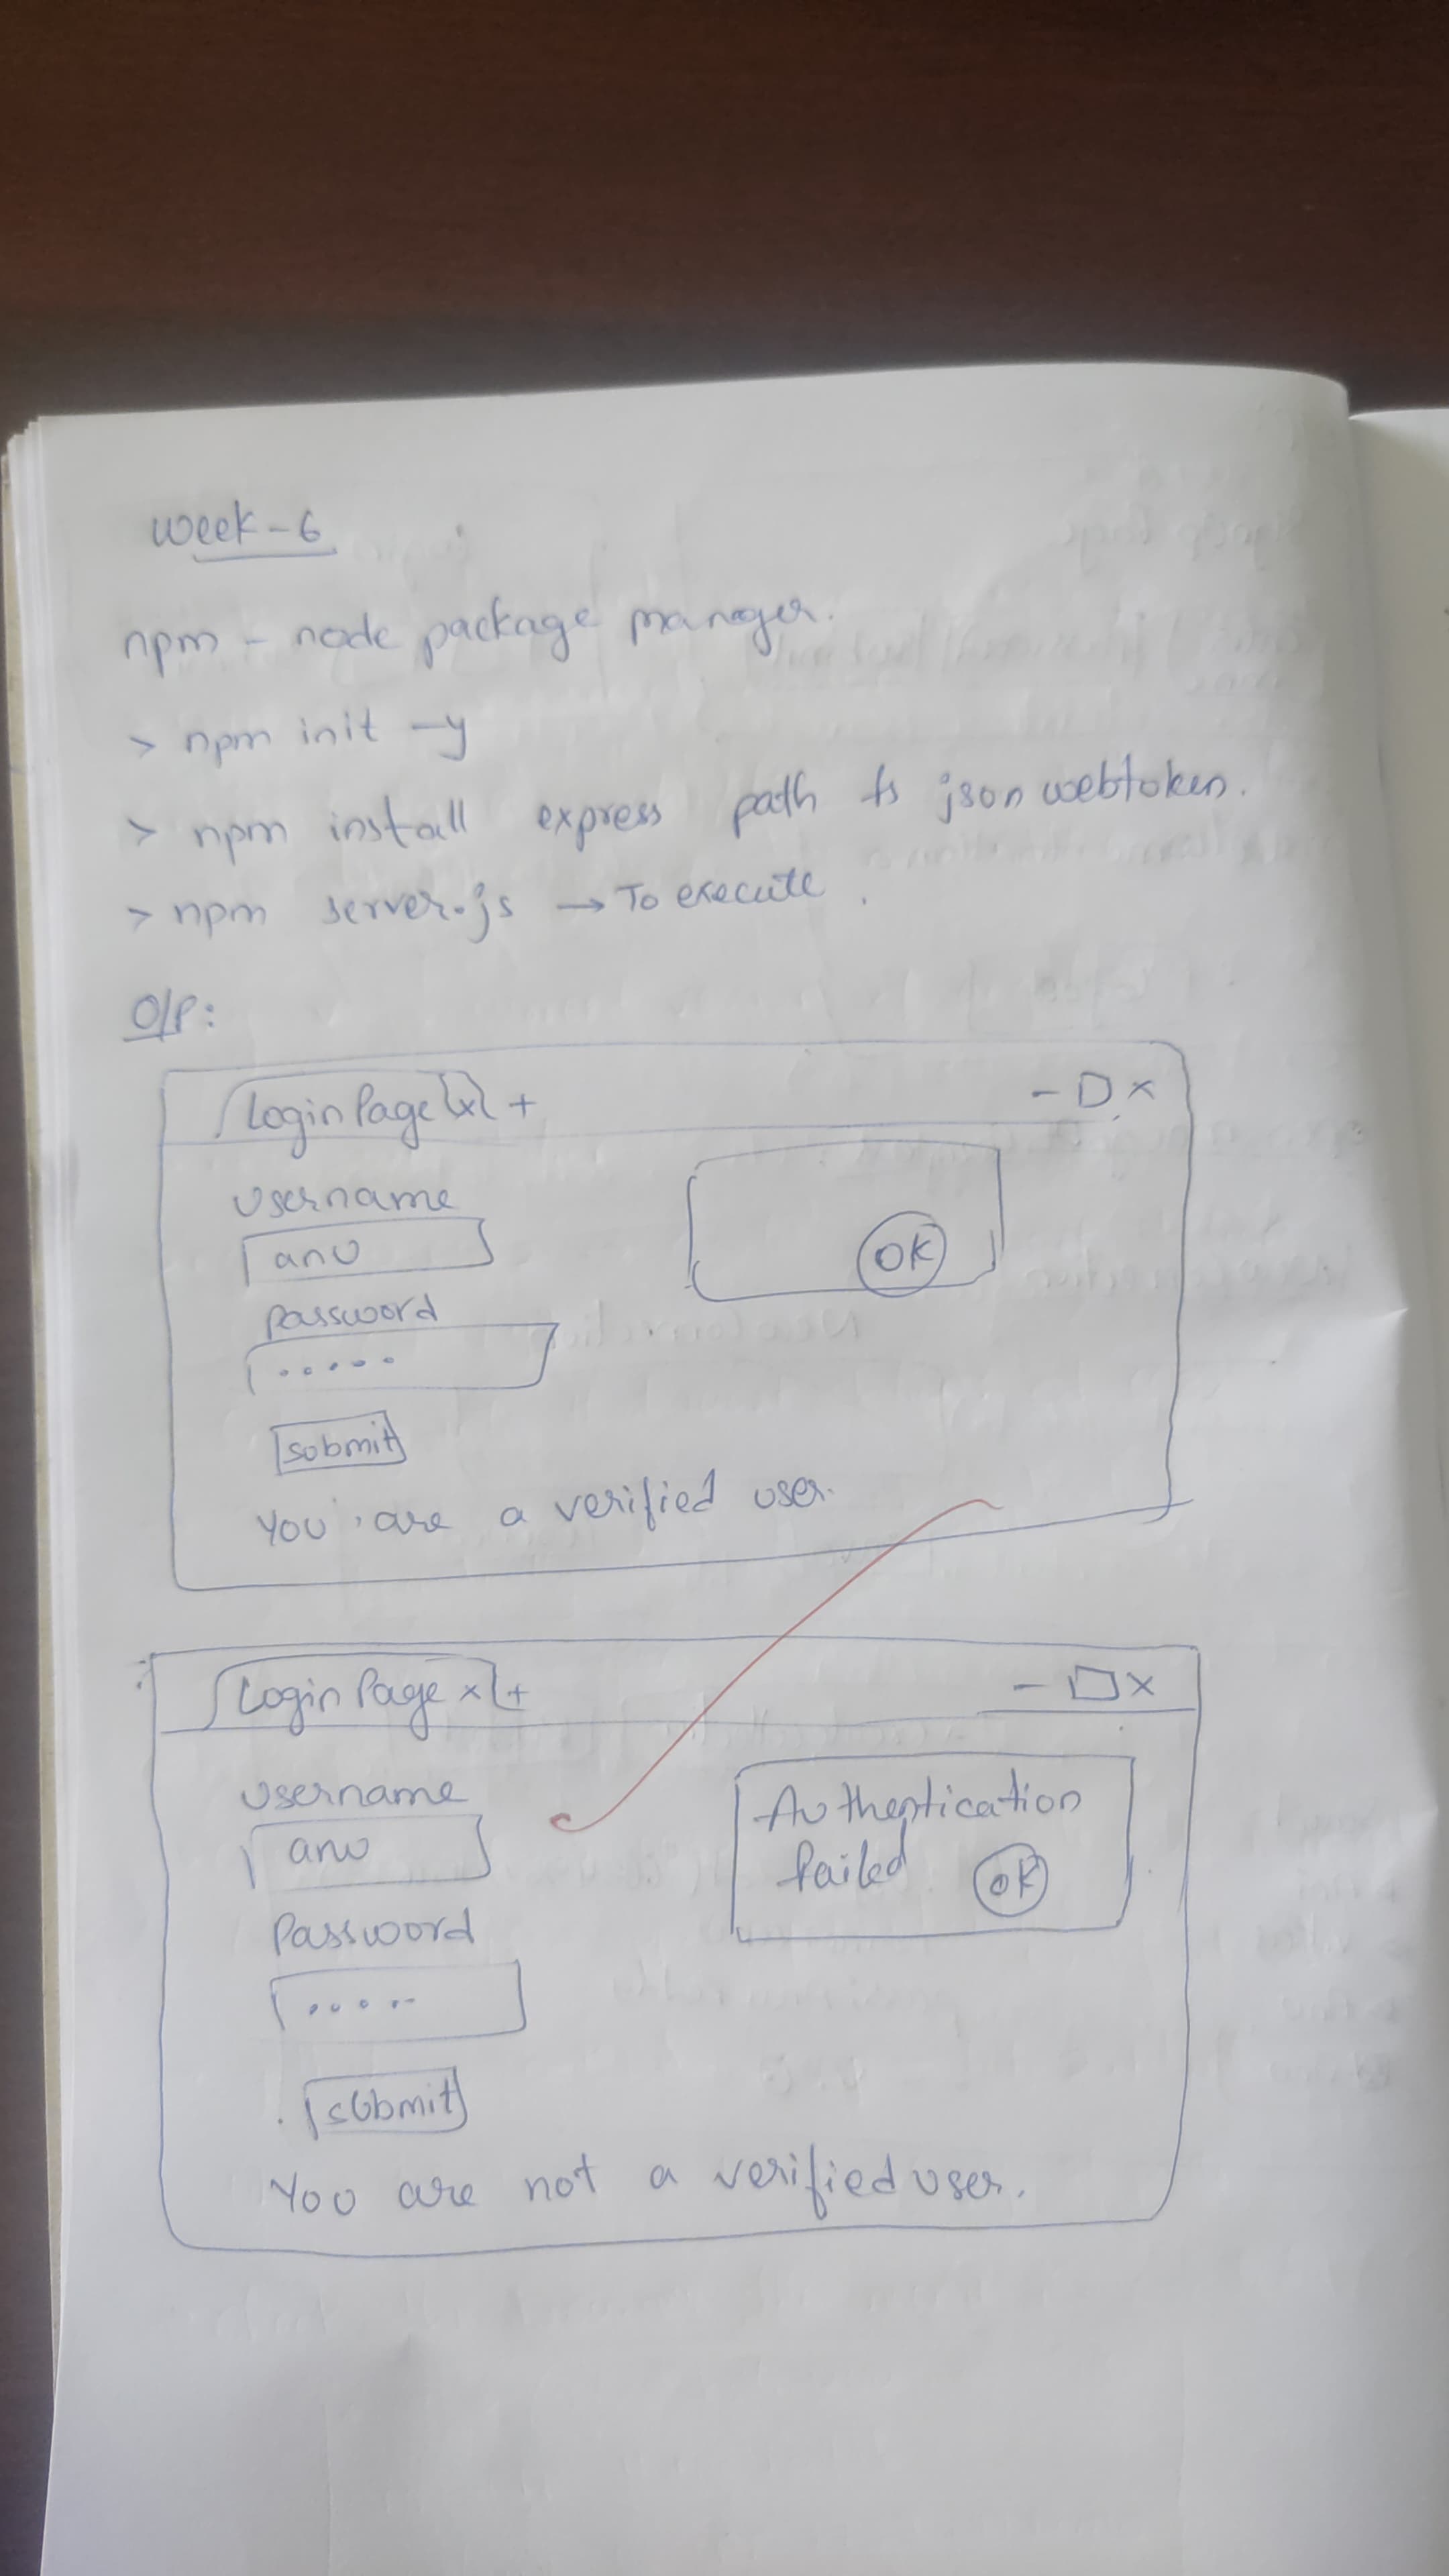 week-6
npm - node package manager.
> npm init -y
> npm install express path fs jsonwebtoken.
> npm server.js → To execute.
O/P:
Login Page x + - □ x
Username
anu
password
.....
OK
submit
You are a verified user.
Login Page x + - □ x
Username
anu
Authentication
failed OK
Password
.....
submit
You are not a verified user.